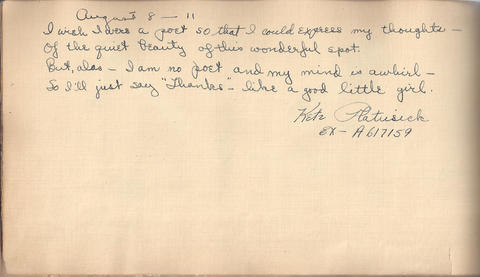 August 8 - 11
I wish I were a poet so that I could express my thoughts -
Of the quiet beauty of this wonderful spot.
But, alas - I am no poet and my mind is awhirl -
So I'll just say "Thanks" - like a good little girl.
Ex - A617159